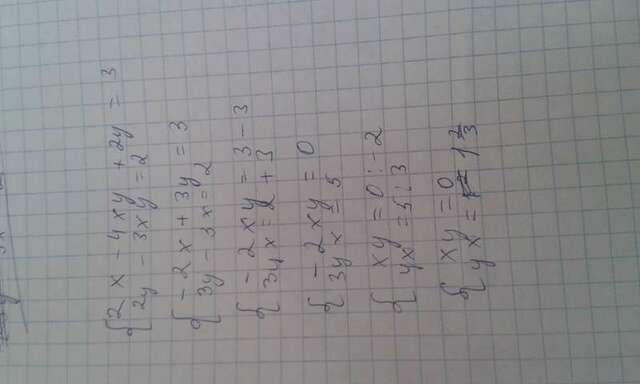 2x - 4xy + 2y = 3
2y - 3xy = 2
- 2x + 3y = 3
3y - 3x = 2
- 2xy = 3 - 3
3yx = 2 + 3
- 2xy = 0
3yx = 5
xy = 0 : -2
yx = 5 : 3
xy = 0
yx = 1 2/3